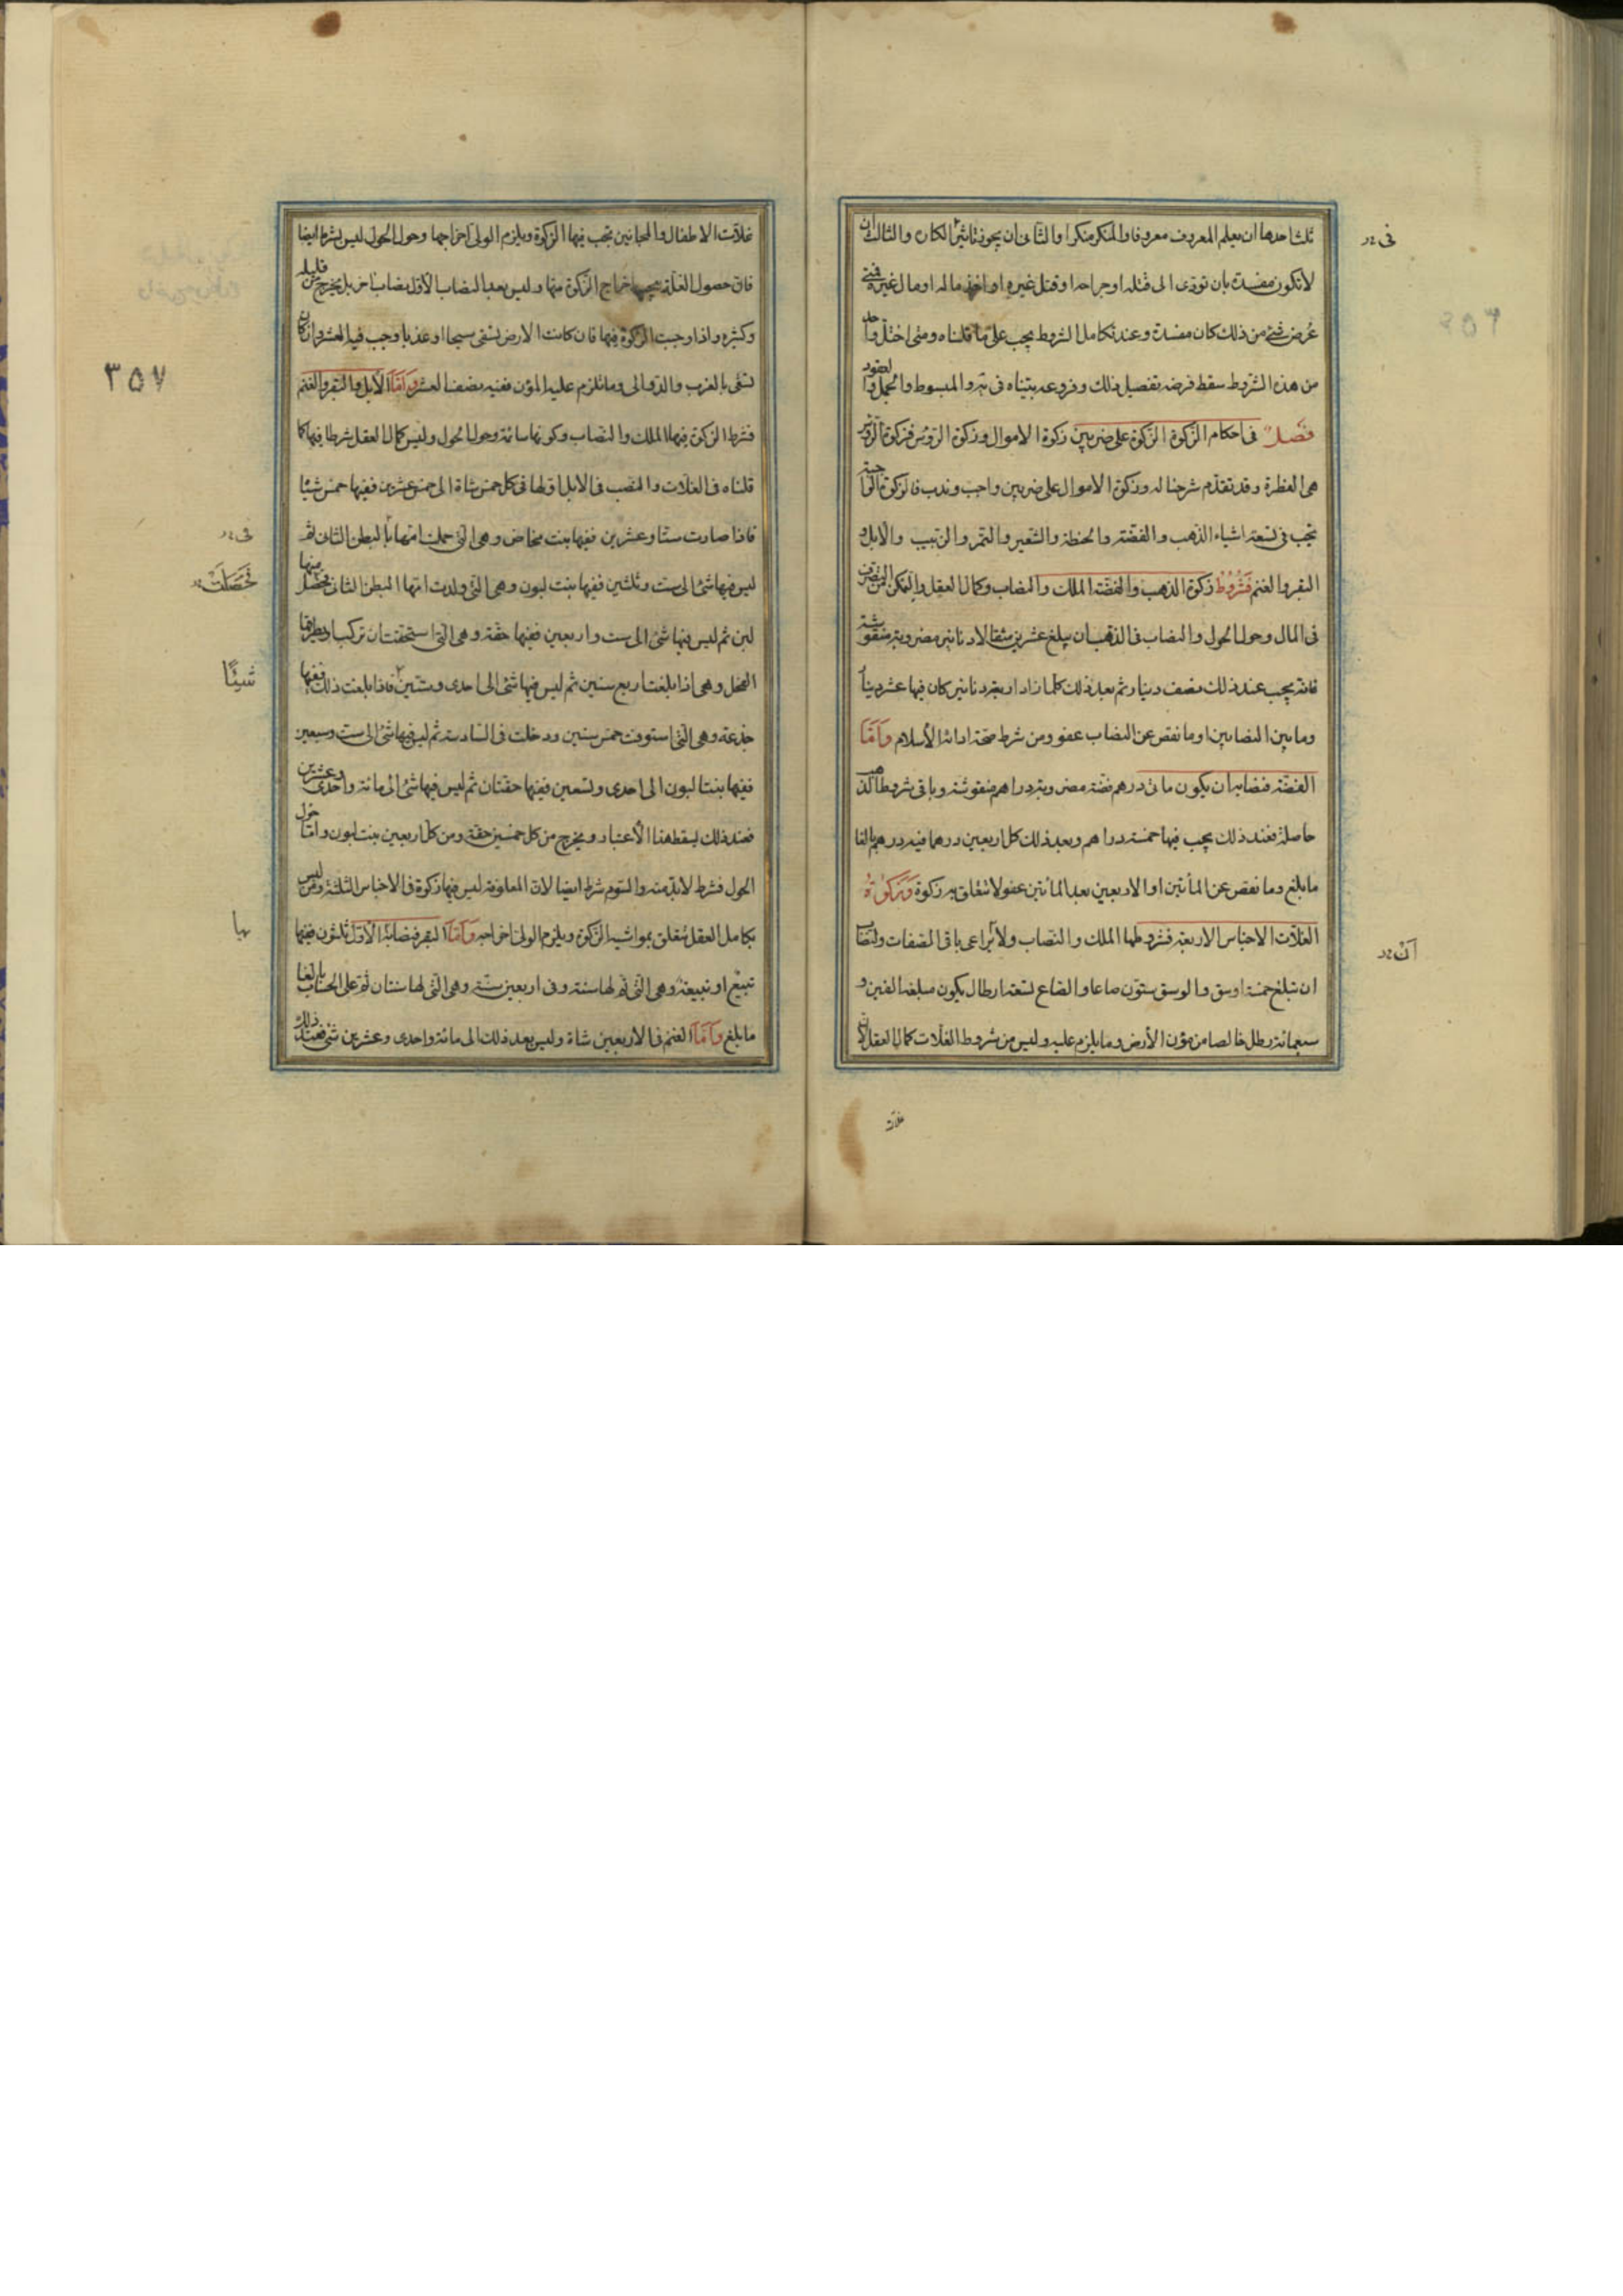 ثلث احدها ان يعلم المعروف معروفا والمنكر منكرا والثانى ان يجوز تاثير الكار والثالث ان
لا تكون مفسدة بان تؤدى الى قتله او جراحه او قتل غيره او اخذ ماله او مال غيره فمتى
عرض شئ من ذلك كان مفسدة وعند تكامل الشروط يجب على ما قلناه ومتى اختل واحد
من هذه الشروط سقط فرضه تفصيل ذلك وفروعه بيناه فى المبسوط والجمل والعقود
فصل فى احكام الزكوة الزكوة على ضربين زكوة الاموال وزكوة الرؤس فزكوة الرؤس
هى الفطرة وقد تقدم شرحنا له وزكوة الاموال على ضربين واجب وندب فالزكوة الواجبة
تجب فى تسعة اشياء الذهب والفضة والحنطة والشعير والتمر والزبيب والابل و
البقر والغنم فشروط زكوة الذهب والفضة الملك والنصاب وكمال العقل والتمكن من التصرف
فى المال وحول الحول والنصاب فى الذهب ان يبلغ عشرين مثقالا دنانير مضروبة منقوشة
فانه يجب عند ذلك نصف دينار ثم بعد ذلك كلما زاد اربعة دنانير كان فيها عشر دينار
وما بين النصابين او ما نقص عن النصاب عفو ومن شرط صحة ادائه الأسلام وَاَمَّا
الفضة فنصابه ان يكون مائتى درهم فضة مضروبة دراهم منقوشة وباقى شروط الذهب
حاصلة فعند ذلك يجب فيها خمسة دراهم وبعد ذلك كل اربعين درهما فيه درهم بالغا
ما بلغ وما نقص عن المأتين او الاربعين بعد المأتين عفو لا تتعلق به زكوة وَزَكوٰةُ
الغلات الاجناس الاربعة فشروطها الملك والنصاب ولا يراعى باقى الصفات والنصاب
ان تبلغ خمسة اوسق والوسق ستون صاعا والصاع تسعة ارطال يكون مبلغه الفين و
سبعمائة رطل خالصا من مؤن الأرض وما يلزم عليه وليس من شروط الغلات كمال العقل لان
فى
اَنْ
غلات
غلات الاطفال والمجانين تجب فيها الزكوة ويلزم الولى اخراجها وحول الحول ليس بشرط ايضا
فان حصول الغلة يجب اخراج الزكوة منها وليس بعد النصاب الأول نصاب اخر بل يخرج من قليله
وكثيره واذا وجبت الزكوة فيها فان كانت الارض تسقى سيحا او عذيا وجب فيه العشر وان كان
تسقى بالغرب والدوالى وما تلزم عليه المؤن ففيه نصف العشر وَاَمَّا الأبل والبقر والغنم
فشرط الزكوة فيها الملك والنصاب وكونها سائمة وحول الحول وليس كمال العقل شرطا فيها كما
قلناه فى الغلات والنصب فى الابل اولها فى كل خمس شاة الى خمس عشرين ففيها خمس شيئا
فاذا صارت ستا وعشرين ففيها بنت مخاض وهى التى حملت امها بالبطن الثانى ثم
ليس فيها شئ الى ست وثلثين ففيها بنت لبون وهى التى ولدت امها البطن الثانى فحصل منها
لبن ثم ليس فيها شئ الى ست واربعين ففيها حقة وهى التى استحقت ان تركب او يطرقها
الفحل وهى اذا بلغت اربع سنين ثم ليس فيها شئ الى احدى وستين فاذا بلغت ذلك ففيها
جذعة وهى التى استوفت خمس سنين ودخلت فى السادسة ثم ليس فيها شئ الى ست وسبعين
ففيها بنتا لبون الى احدى وتسعين ففيها حقتان ثم ليس فيها شئ الى مائة واحدى وعشرين
فعند ذلك يسقط هذا الأعتبار ويخرج من كل خمسين حقة ومن كل اربعين بنت لبون واما حول
الحول فشرط لابد منه والسوم شرط ايضا لان المعلوفة ليس فيها زكوة فى الاجناس الثلثة ومن ليس
بكامل العقل تتعلق بمواشيه الزكوة ويلزم الولى اخراجه وَاَمَّا البقر فنصابه الأول ثلثون ففيها
تبيع او تبيعة وهى التى تم لها سنة وفى اربعين مسنة وهى التى لها سنتان ثم على الحساب بالغا
ما بلغ وَاَمَّا الغنم فالاربعين شاة وليس بعد ذلك الى مائة واحدى وعشرين شئ فعند ذلك
٣٥٧
فى
فحَصَلَتْ
شَيْئًا
بها